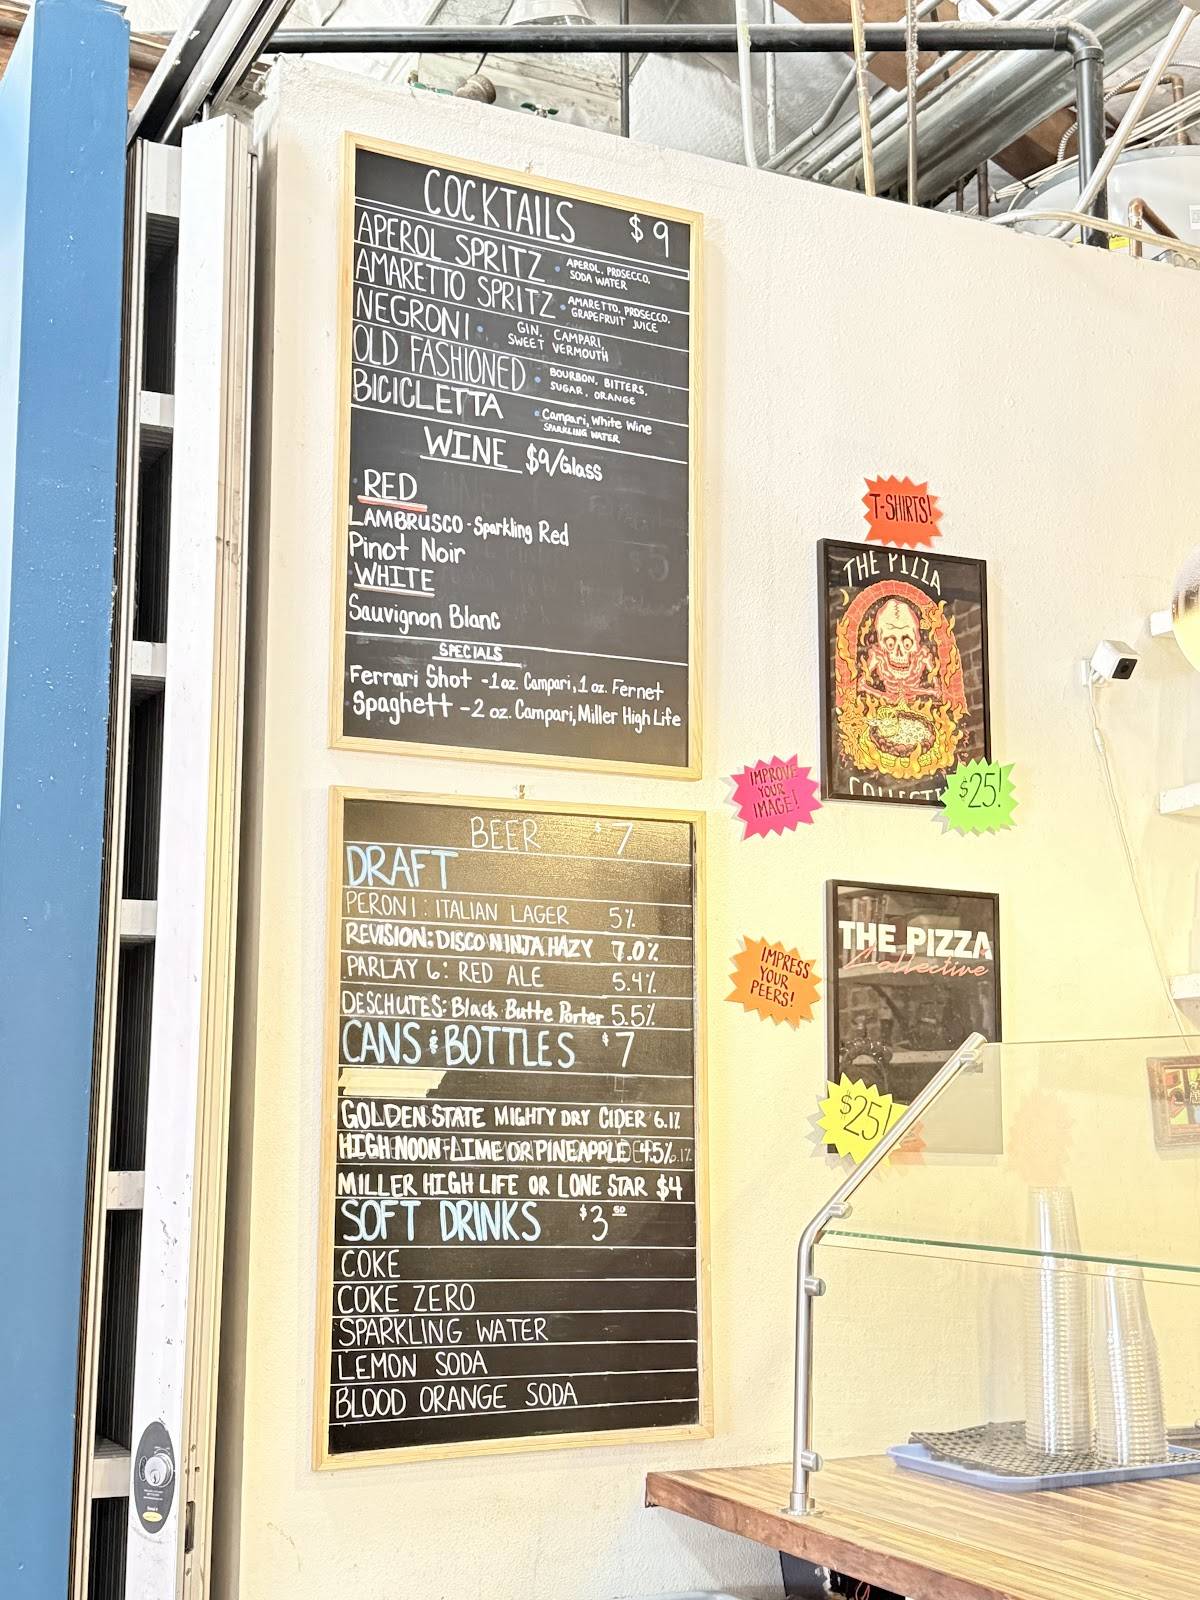 COCKTAILS $9
APEROL SPRITZ • APEROL, PROSECCO,
SODA WATER
AMARETTO SPRITZ • AMARETTO, PROSECCO,
GRAPEFRUIT JUICE
NEGRONI • GIN, CAMPARI,
SWEET VERMOUTH
OLD FASHIONED • BOURBON, BITTERS,
SUGAR, ORANGE
BICICLETTA • Campari, White Wine
SPARKLING WATER
WINE $9/Glass
RED
LAMBRUSCO - Sparkling Red
Pinot Noir
WHITE
Sauvignon Blanc
SPECIALS
Ferrari Shot - 1 oz. Campari, 1 oz. Fernet
Spaghett - 2 oz. Campari, Miller High Life
BEER $7
DRAFT
PERONI: ITALIAN LAGER 5%
REVISION: DISCO NINJA HAZY 7.0%
PARLAY 6: RED ALE 5.4%
DESCHUTES: Black Butte Porter 5.5%
CANS & BOTTLES $7
GOLDEN STATE MIGHTY DRY CIDER 6.1%
HIGH NOON - LIME OR PINEAPPLE 4.5%
MILLER HIGH LIFE OR LONE STAR $4
SOFT DRINKS $3.50
COKE
COKE ZERO
SPARKLING WATER
LEMON SODA
BLOOD ORANGE SODA
T-SHIRTS!
THE PIZZA
COLLECTI
IMPROVE
YOUR
IMAGE!
$25!
THE PIZZA
Collective
IMPRESS
YOUR
PEERS!
$25!